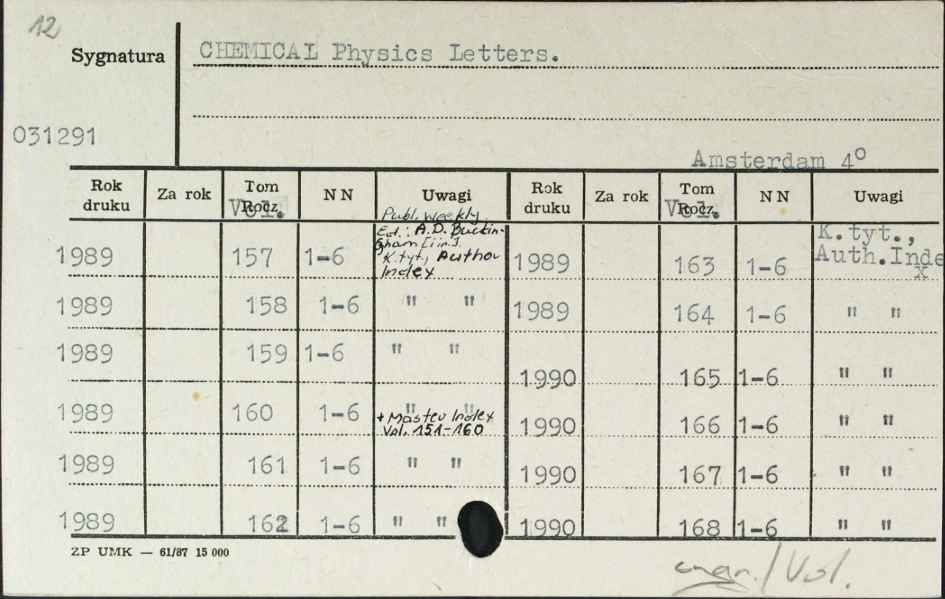 12
Sygnatura
CHEMICAL Physics Letters.
031291
Amsterdam 4°
Rok druku Za rok Tom Rocz. Vol. NN Uwagi Rok druku Za rok Tom Rocz. Vol. NN Uwagi
Publ. weekly
Ed.: A.D. Buckin-
gham [i in.]
K.tyt., Author
Index
K.tyt.,
Auth.Inde
x
1989 157 1-6 1989 163 1-6
1989 158 1-6 " " 1989 164 1-6 " "
1989 159 1-6 " " 1990 165 1-6 " "
1989 160 1-6 " " 1990 166 1-6 " "
+ Master Index
Vol. 151-160
1989 161 1-6 " " 1990 167 1-6 " "
1989 162 1-6 " " 1990 168 1-6 " "
ZP UMK — 61/87 15 000
/Vol.